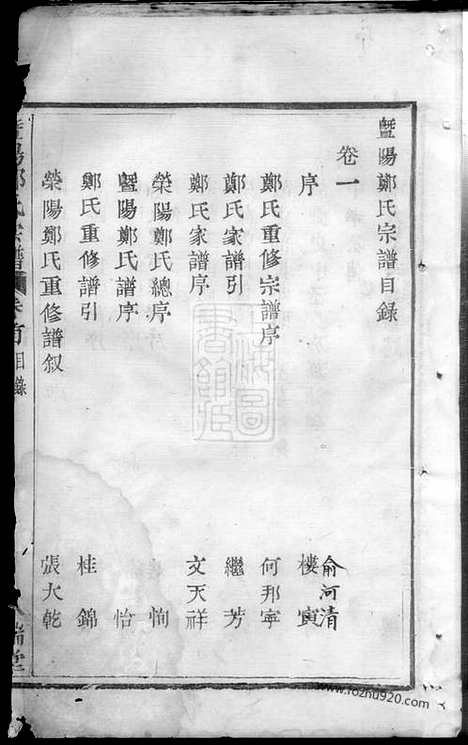 暨陽鄭氏宗譜目錄
卷一
俞河清
序 樓寅
鄭氏重修宗譜序 何邦寧
鄭氏家譜引 繼芳
鄭氏家譜序 文天祥
滎陽鄭氏總序 恂
暨陽鄭氏譜序 怡
鄭氏重修譜引 桂錦
滎陽鄭氏重修譜叙 張大乾
暨陽鄭氏宗譜 目錄
www.fozhu920.com